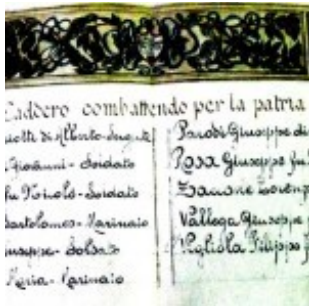 Caddero combattendo per la patria
di Alberto
Giovanni - Soldato
fu Nicolò - Soldato
Bartolomeo - Marinaio
Giuseppe - Soldato
Maria - Marinaio
Parodi Giuseppe di
Rosa Giuseppe fu
Zanone Lorenzo
Vallega Giuseppe
Vigliola Filippo f